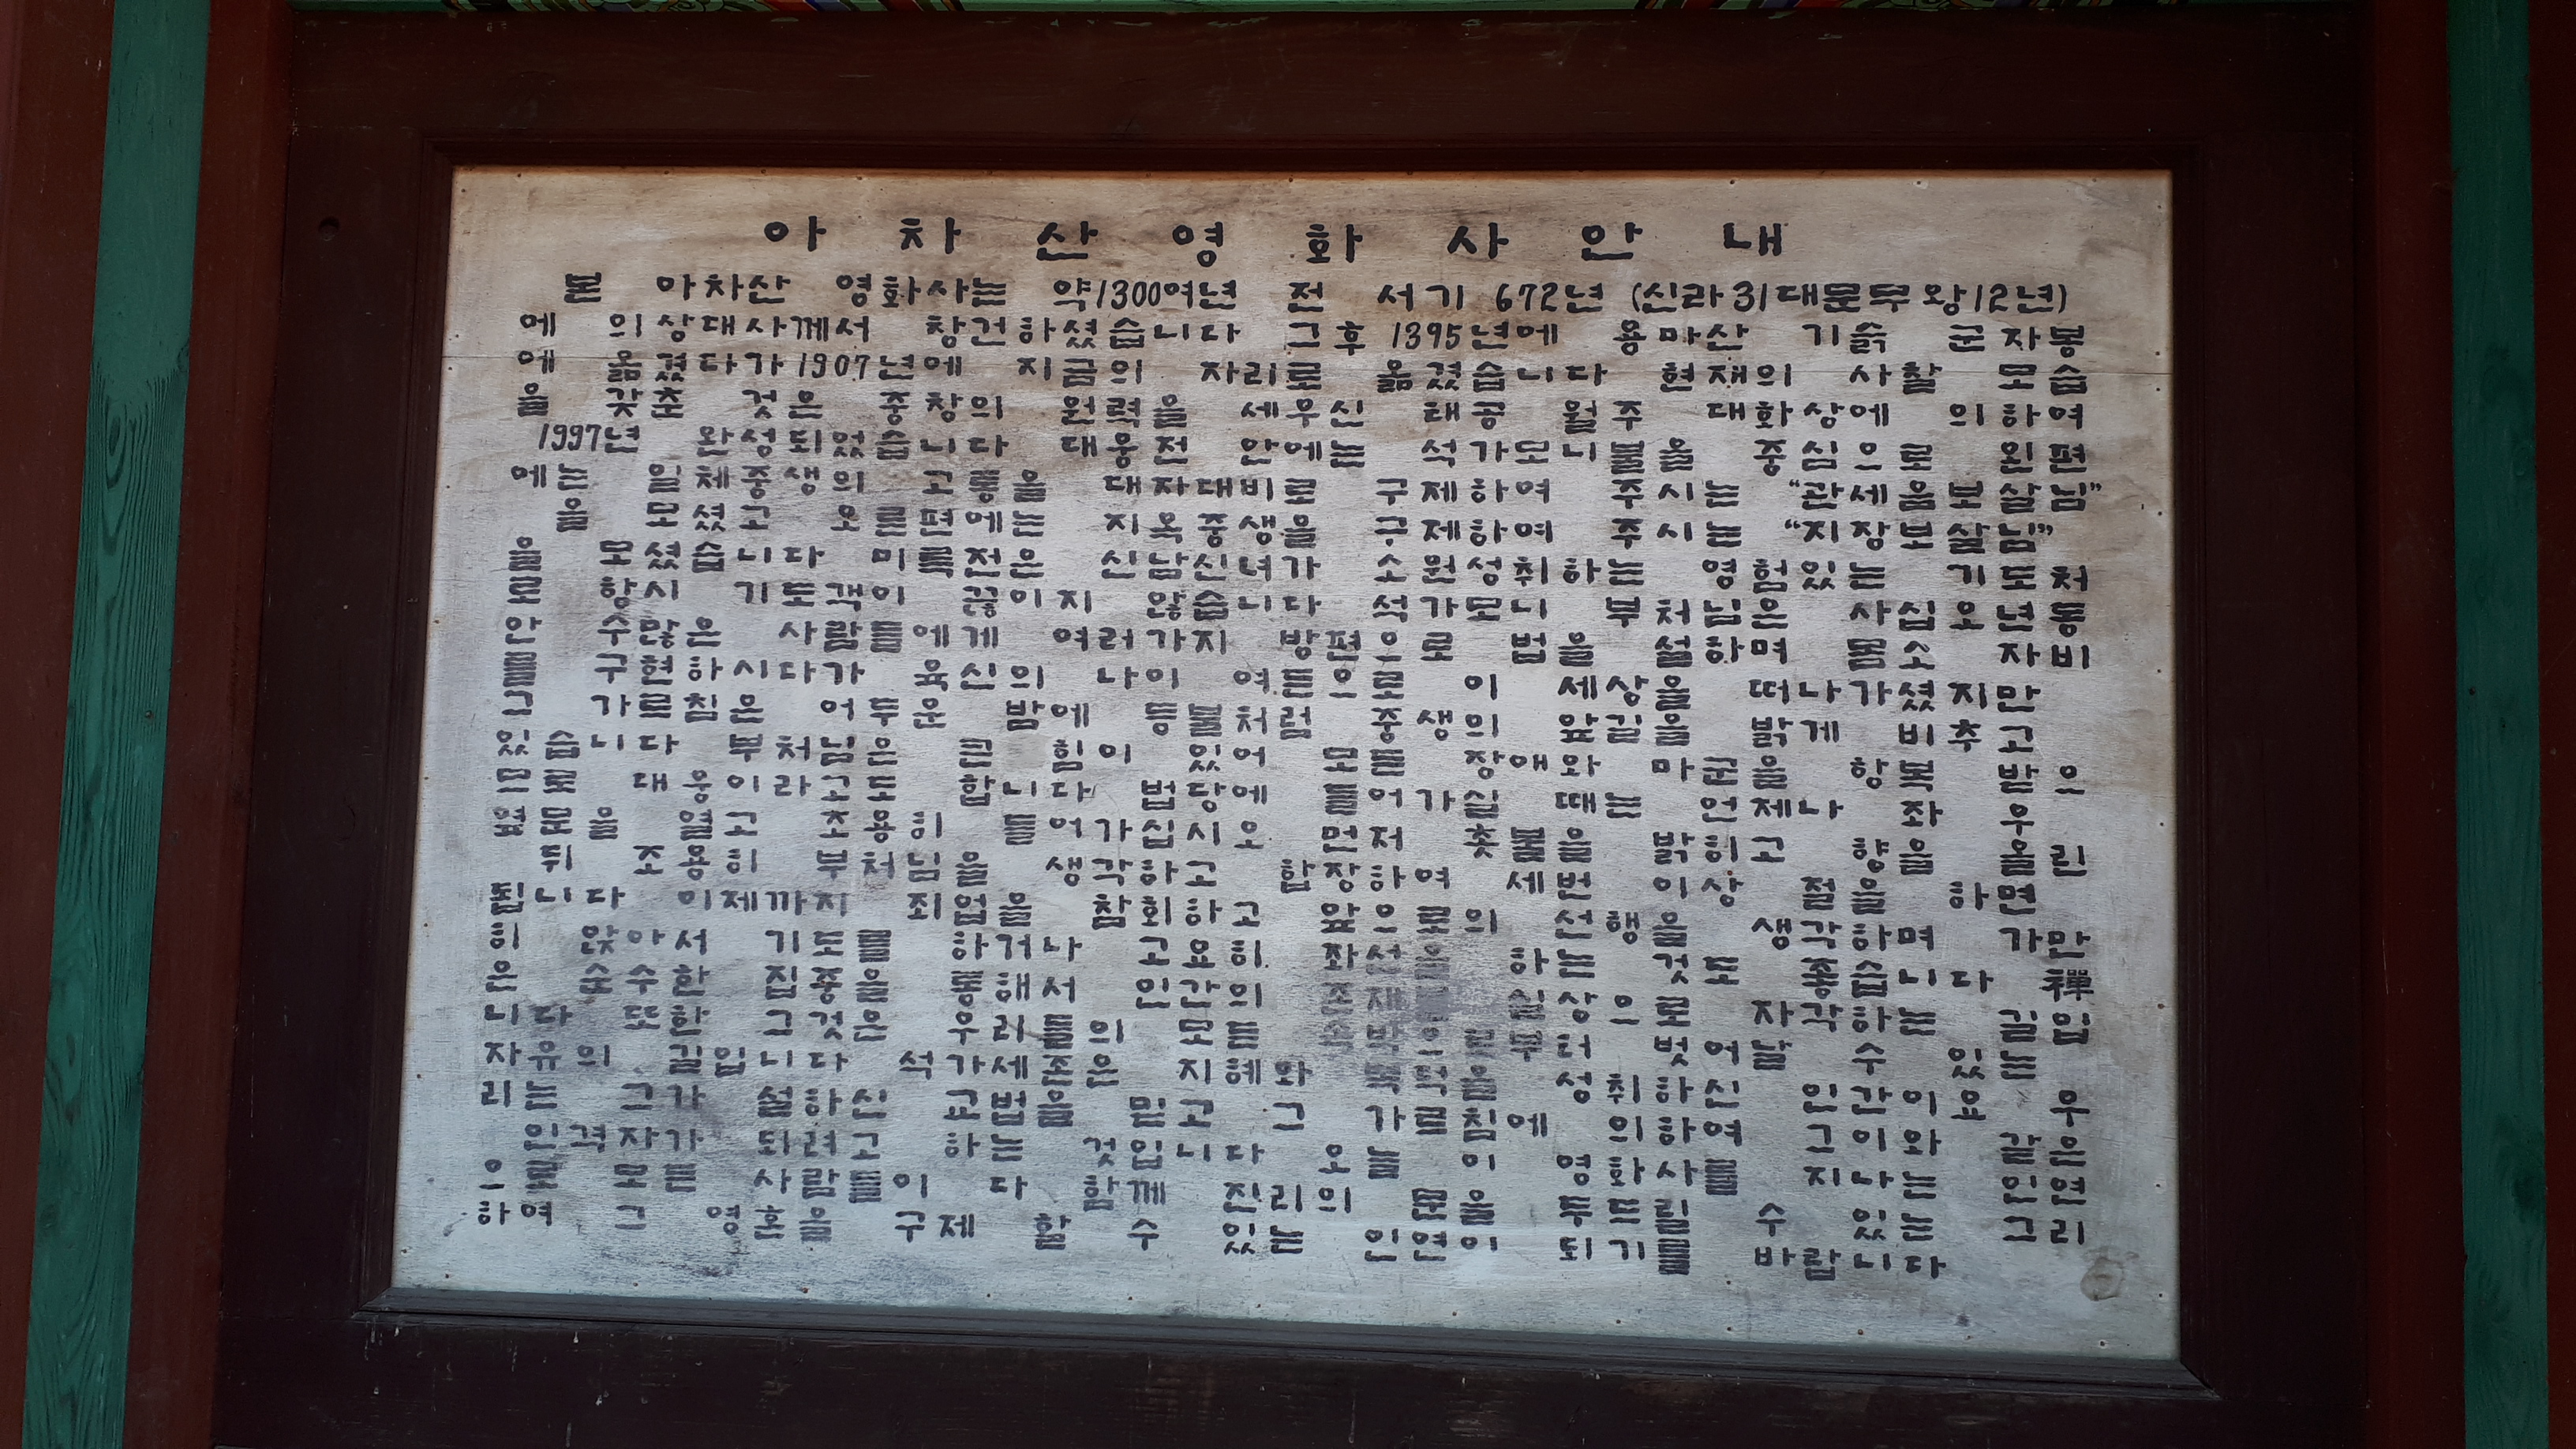 아차산영화사안내
본 아차산 영화사는 약1300여년 전 서기 672년 (신라31대문무왕12년)
에 의상대사께서 창건하셨습니다 그후 1395년에 용마산 기슭 군자봉
에 옮겼다가1907년에 지금의 자리로 옮겼습니다 현재의 사찰 모습
을 갖춘 것은 중창의 원력을 세우신 태공 월주 대화상에 의하여
1997년 완성되었습니다 대웅전 안에는 석가모니불을 중심으로 왼편
에는 일체중생의 고통을 대자대비로 구제하여 주시는 “관세음보살님”
을 모셨고 오른편에는 지옥중생을 구제하여 주시는 “지장보살님”
을 모셨습니다 미륵전은 신남신녀가 소원성취하는 영험있는 기도처
로 항시 기도객이 끊이지 않습니다 석가모니 부처님은 사십오년동
안 수많은 사람들에게 여러가지 방편으로 법을 설하며 몸소 자비
를 구현하시다가 육신의 나이 여든으로 이 세상을 떠나가셨지만
그 가르침은 어두운 밤에 등불처럼 중생의 앞길을 밝게 비추고
있습니다 부처님은 큰 힘이 있어 모든 장애와 마군을 항복 받으
므로 대웅이라고도 합니다 법당에 들어가실 때는 언제나 좌 우
옆문을 열고 조용히 들어가십시오 먼저 촛불을 밝히고 향을 올린
뒤 조용히 부처님을 생각하고 합장하여 세번 이상 절을 하면
됩니다 이제까지 죄업을 참회하고 앞으로의 선행을 생각하며 가만
히 앉아서 기도를 하거나 고요히 좌선을 하는 것도 좋습니다 禪
은 순수한 집중을 통해서 인간의 존재를 실상으로 자각하는 길입
니다 또한 그것은 우리들의 모든 속박으로 부터 벗어날 수 있는
자유의 길입니다 석가세존은 지혜와 복덕을 성취하신 인간이요 우
리는 그가 설하신 교법을 믿고 그 가르침에 의하여 그이와 같은
인격자가 되려고 하는 것입니다 오늘 이 영화사를 지나는 인연
으로 모든 사람들이 다 함께 진리의 문을 두드릴 수 있는 그리
하여 그 영혼을 구제 할 수 있는 인연이 되기를 바랍니다